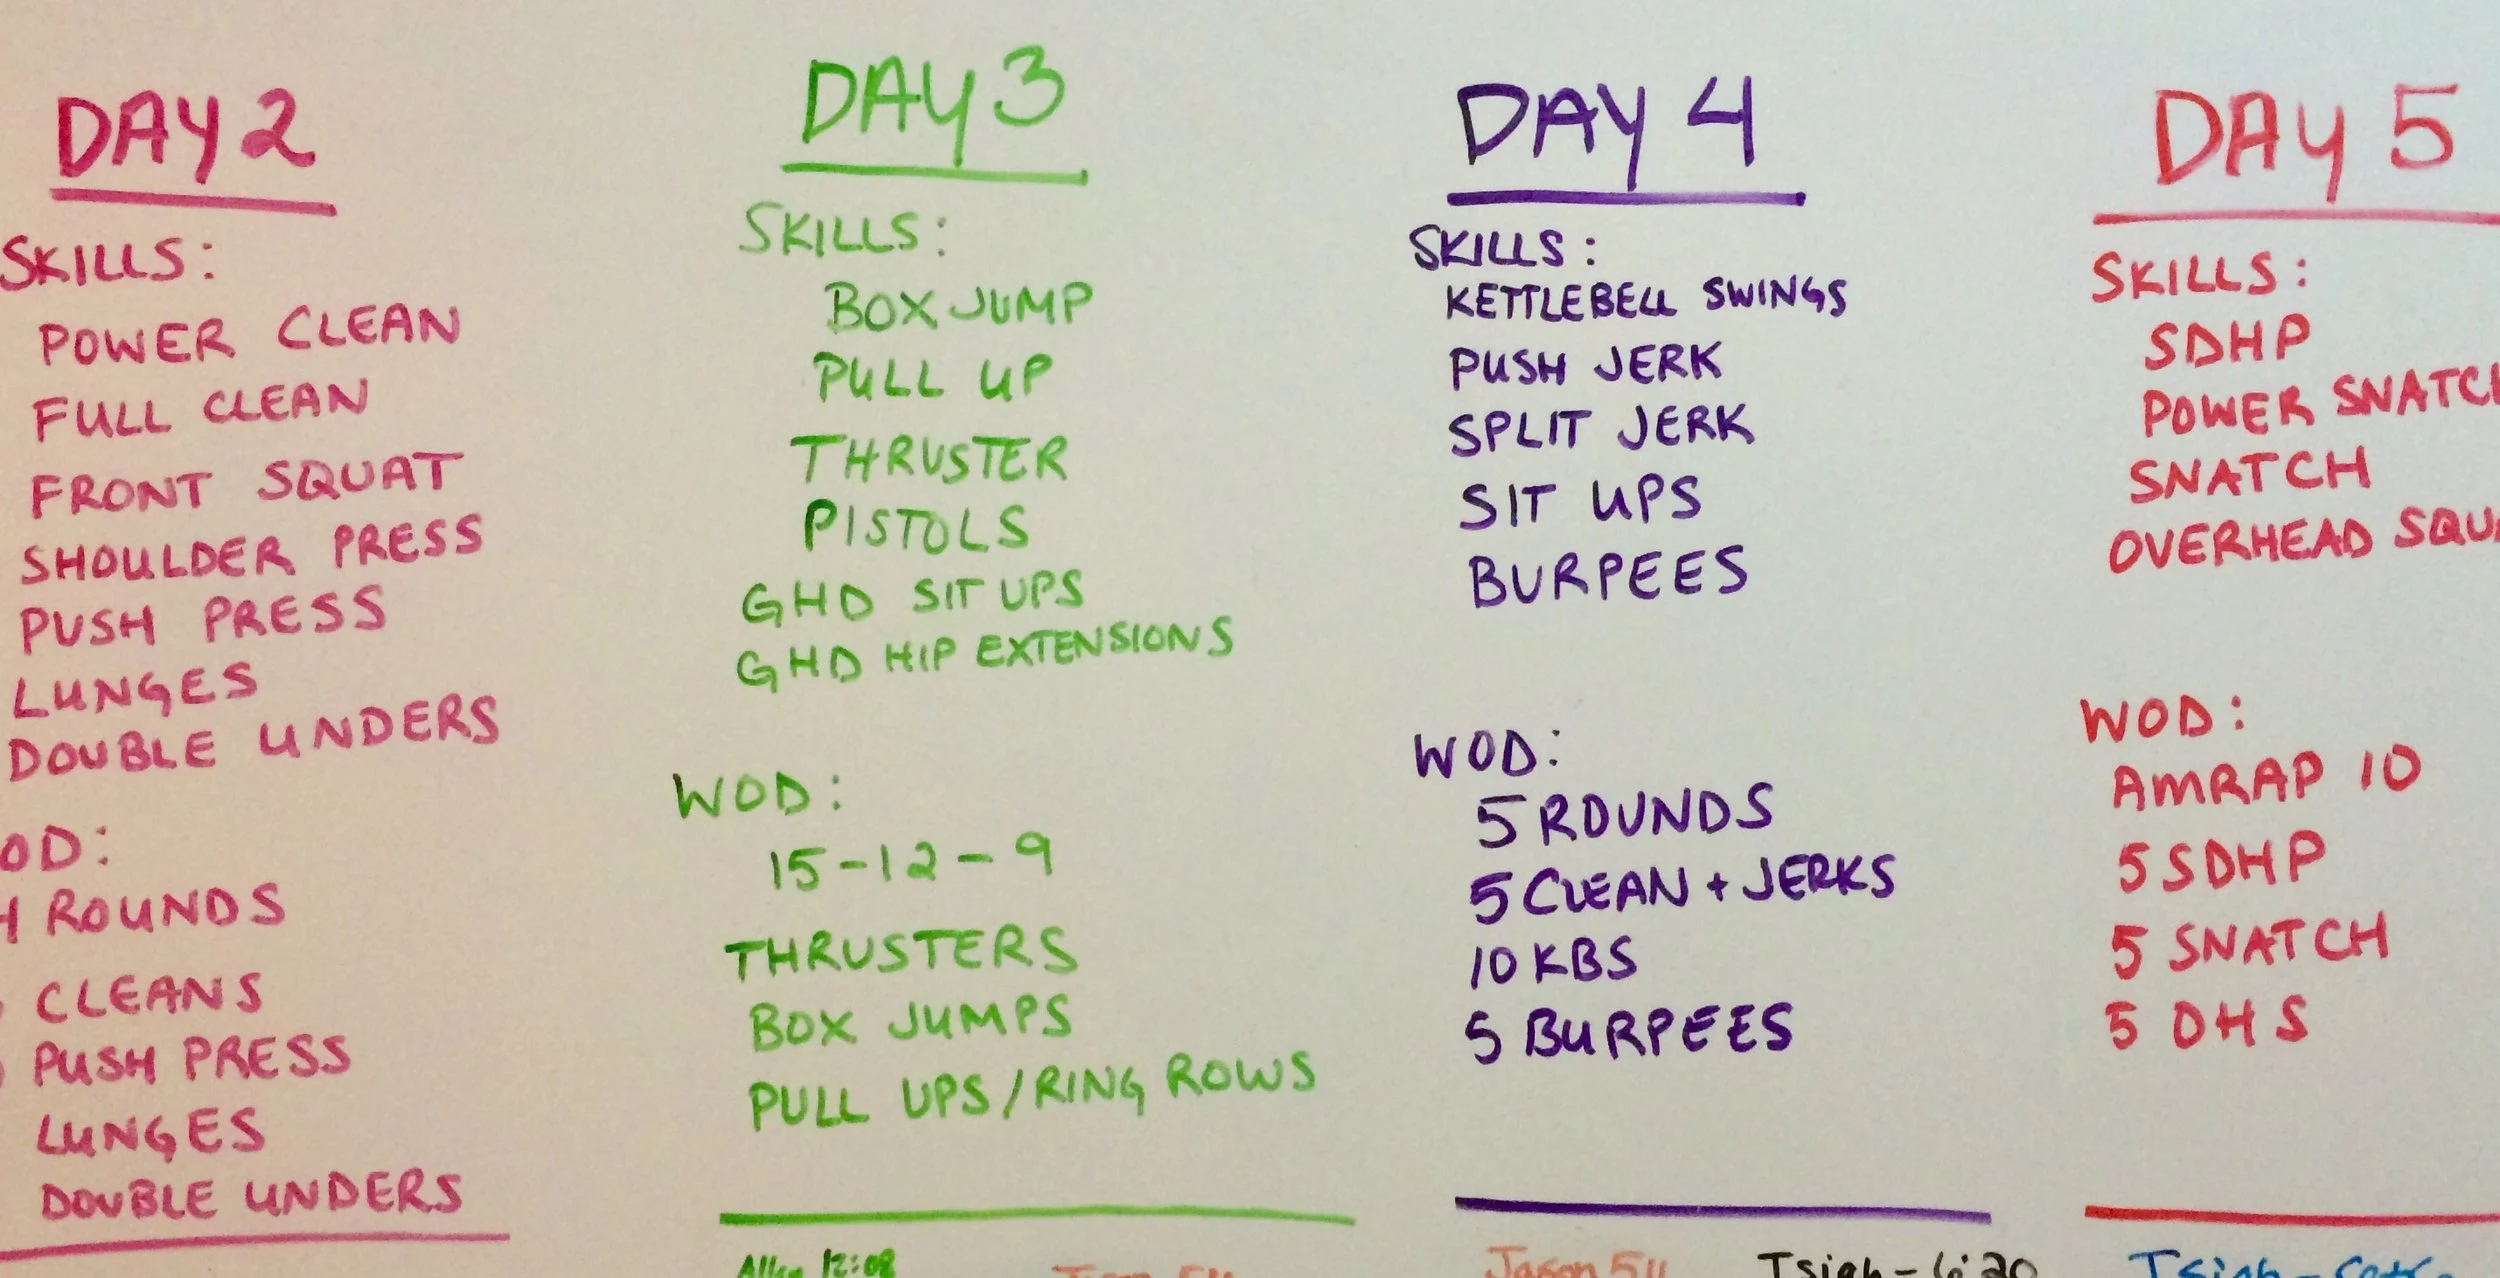 DAY 2
SKILLS:
POWER CLEAN
FULL CLEAN
FRONT SQUAT
SHOULDER PRESS
PUSH PRESS
LUNGES
DOUBLE UNDERS
OD:
4 ROUNDS
CLEANS
PUSH PRESS
LUNGES
DOUBLE UNDERS
DAY 3
SKILLS:
BOX JUMP
PULL UP
THRUSTER
PISTOLS
GHD SIT UPS
GHD HIP EXTENSIONS
WOD:
15-12-9
THRUSTERS
BOX JUMPS
PULL UPS/RING ROWS
12:08
DAY 4
SKILLS:
KETTLEBELL SWINGS
PUSH JERK
SPLIT JERK
SIT UPS
BURPEES
WOD:
5 ROUNDS
5 CLEAN + JERKS
10 KBS
5 BURPEES
Jason
Tsiah - 6:20
DAY 5
SKILLS:
SDHP
POWER SNATC
SNATCH
OVERHEAD SQU
WOD:
AMRAP 10
5 SDHP
5 SNATCH
5 OHS
Tsiah -